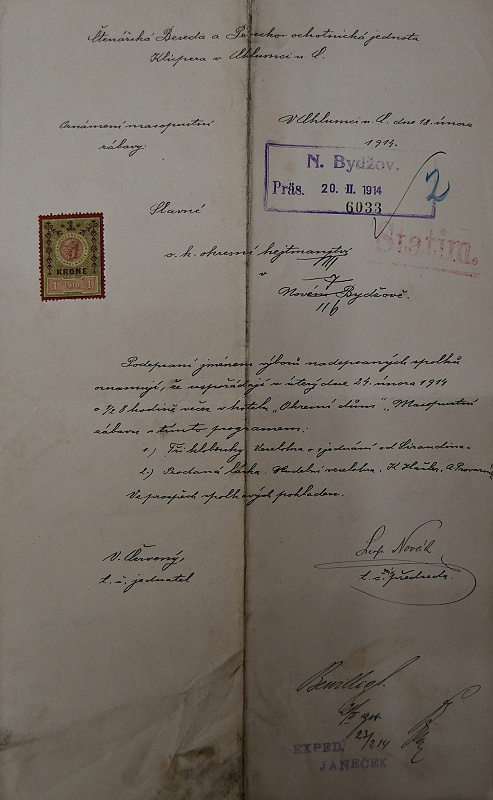 Čtenářská Beseda a Pěvecko ochotnická jednota
Klicpera v Chlumci n. C.
Oznámení masopustní
zábavy.
V Chlumci n. C. dne 18. února
1914.
N. Bydžov.
Präs. 20. II. 1914
6033
2
Statim.
Slavné
c. k. okresní hejtmanství
v
Novém Bydžově.
116
KRONE
1 1
Podepsaní jménem výborů nadepsaných spolků
oznamují, že uspořádají v úterý dne 24. února 1914
o ½ 8 hodině večer v hotelu „Okresní dům" „Masopustní
zábavu s tímto programem:
1.) Tři klobouky Veselohra o jednání od
2.) Prodaná láska. Hudební veselohra. K. Hašler, A.
Ve prospěch spolkových pokladen.
V. Červený,
t. č. jednatel
Lup. Novák
t. č. předseda.
Bewilligt.
23/2 14
EXPED.
JANEČEK